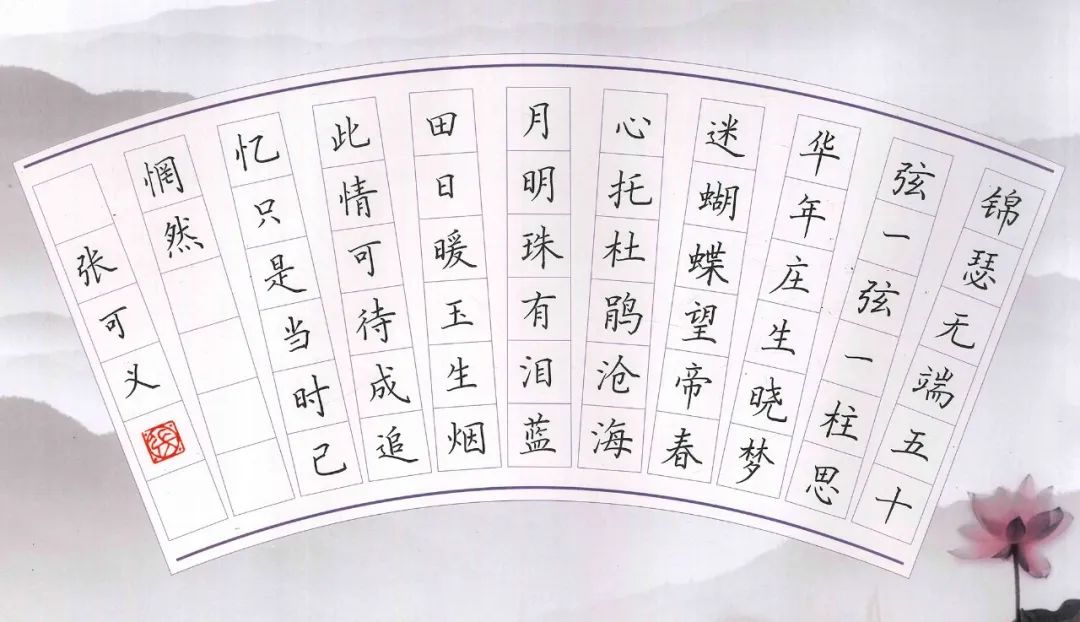 锦瑟无端五十
弦一弦一柱思
华年庄生晓梦
迷蝴蝶望帝春
心托杜鹃沧海
月明珠有泪蓝
田日暖玉生烟
此情可待成追
忆只是当时已
惘然
张可义